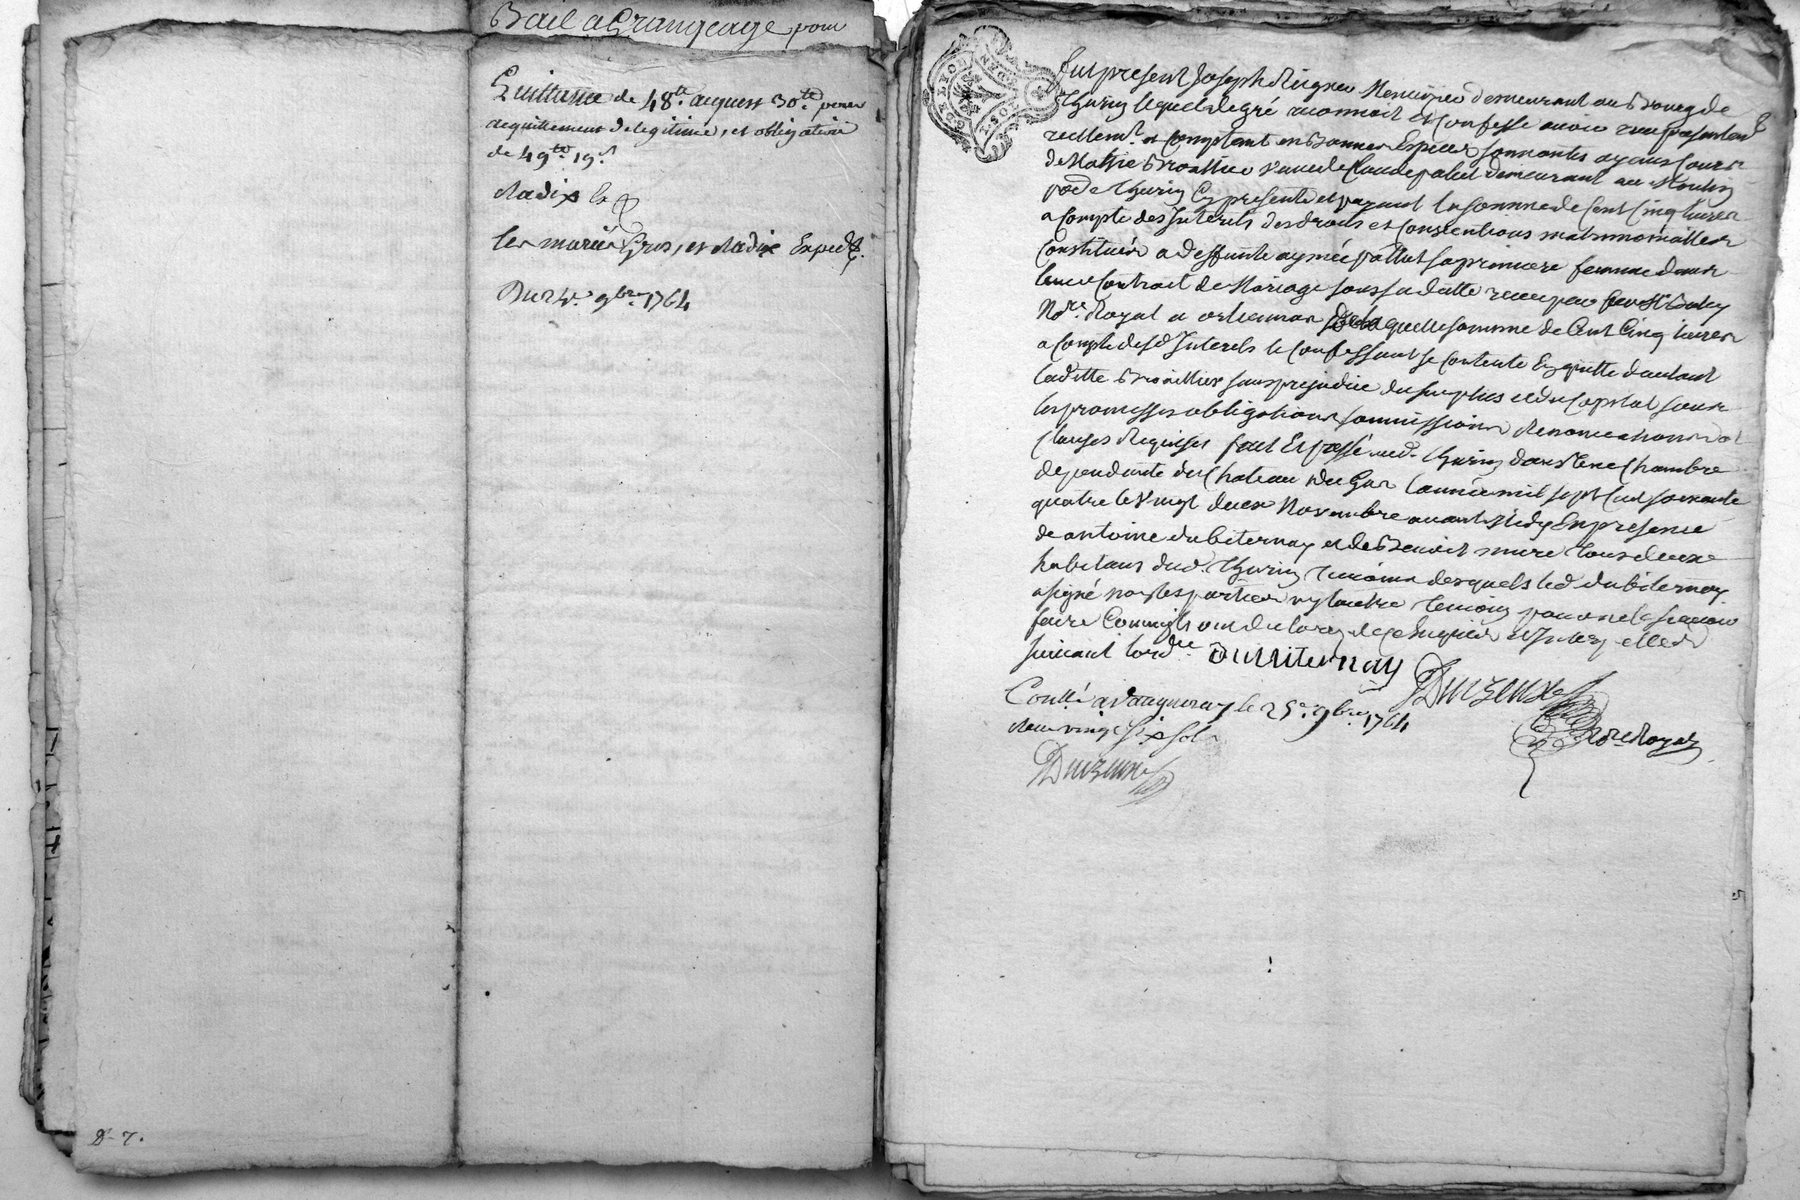 Bail a Grangeage pour
Quittance de 48tt acquers 30tt pour
acquittement de legitime, et obligation
de 49tt 19s
Radix la
les mariés Gros, et Radix Exped.
Du 24e 9bre 1764
8-7.
GE LYON
Fut present Joseph Menuzier demeurant au Bourg de
Thurin lequel de gré reconnoit et Confesse avoir reçu presentement
reellemt. et Comptant en Bonnes Especes sonnantes ayans Cours
de veuve de Claude demeurant au Moulin
de Thurin Cy presente et payant la somme de Cent Cinq livres
a Compte des Interets des droits et Conventions matrimonialles
Constitués a deffunte aymée sa premiere femme dans
leur Contrat de Mariage sous sa datte receu par
Nore. Royal a laquelle somme de Cent Cinq livres
a Compte desd Interets le Confessant se Contente En quitte d'autant
laditte sans prejudice du surplus et du Capital sous
les promesses obligations soumissions Renonciations et
Clauses Requises fait Et passé aud. Thurin dans une Chambre
dependante du Chateau du L'année mil sept Cent soixante
quatre le Vingt deux Novembre avant Midy En presence
de antoine dubiternay et de Benoist mure tous deux
habitans dud. Thurin temoins desquels led dubiternay
a signé non les parties ny l'autre temoin pour ne le scavoir
faire Comme ils ont declaré de ce Enquis et
suivant l'ord.ce Dubiternay Duzeux
Conllé a Vaugneray le 25e. 9bre 1764
Reçu vingt Six Sols Nore Royal
Duzeux